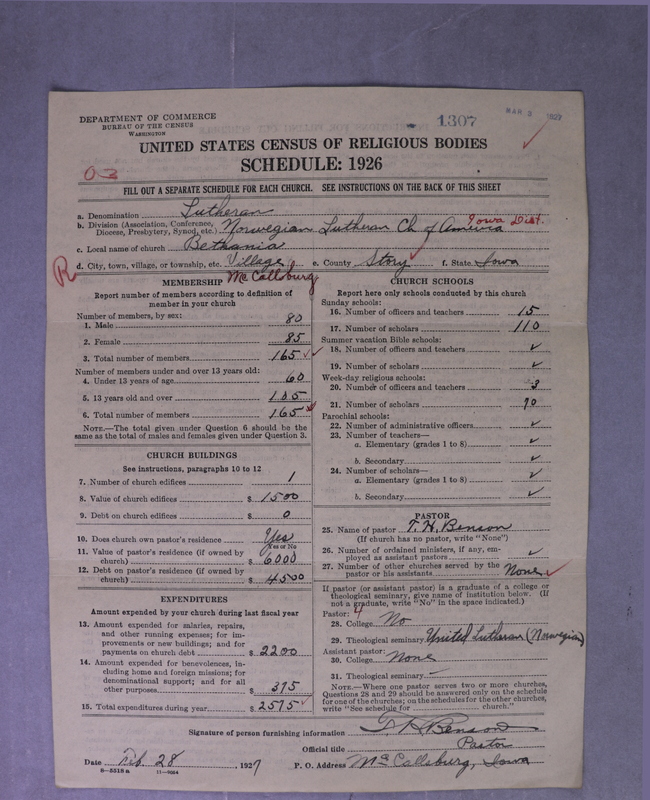 DEPARTMENT OF COMMERCE
BUREAU OF THE CENSUS
WASHINGTON
1307
MAR 3 1927
UNITED STATES CENSUS OF RELIGIOUS BODIES
SCHEDULE: 1926
03
FILL OUT A SEPARATE SCHEDULE FOR EACH CHURCH. SEE INSTRUCTIONS ON THE BACK OF THIS SHEET
a. Denomination Lutheran
b. Division (Association, Conference, Diocese, Presbytery, Synod, etc.) Norwegian Lutheran Ch of America Iowa Dist.
c. Local name of church Bethania
d. City, town, village, or township, etc. Village McCallsburg e. County Story f. State Iowa
R
MEMBERSHIP
Report number of members according to definition of
member in your church
Number of members, by sex:
1. Male 80
2. Female 85
3. Total number of members 165 ✓✓
Number of members under and over 13 years old:
4. Under 13 years of age 60
5. 13 years old and over 105
6. Total number of members 165 ✓
NOTE.—The total given under Question 6 should be the
same as the total of males and females given under Question 3.
CHURCH BUILDINGS
See instructions, paragraphs 10 to 12
7. Number of church edifices 1
8. Value of church edifices $ 1500
9. Debt on church edifices $ 0
10. Does church own pastor's residence? Yes
Yes or No
11. Value of pastor's residence (if owned by
church) $ 6000
12. Debt on pastor's residence (if owned by
church) $ 4500
EXPENDITURES
Amount expended by your church during last fiscal year
13. Amount expended for salaries, repairs,
and other running expenses; for im-
provements or new buildings; and for
payments on church debt $ 2200
14. Amount expended for benevolences, in-
cluding home and foreign missions; for
denominational support; and for all
other purposes $ 375
15. Total expenditures during year $ 2575 ✓
CHURCH SCHOOLS
Report here only schools conducted by this church
Sunday schools:
16. Number of officers and teachers 15
17. Number of scholars 110
Summer vacation Bible schools:
18. Number of officers and teachers ✓
19. Number of scholars ✓
Week-day religious schools:
20. Number of officers and teachers 3
21. Number of scholars 70
Parochial schools:
22. Number of administrative officers ✓
23. Number of teachers—
a. Elementary (grades 1 to 8) ✓
b. Secondary ✓
24. Number of scholars—
a. Elementary (grades 1 to 8) ✓
b. Secondary ✓
PASTOR
25. Name of pastor T. H. Benson
(If church has no pastor, write "None")
26. Number of ordained ministers, if any, em-
ployed as assistant pastors ✓
27. Number of other churches served by the
pastor or his assistants None ✓
If pastor (or assistant pastor) is a graduate of a college or
theological seminary, give name of institution below. (If
not a graduate, write "No" in the space indicated.)
Pastor: 4
28. College No
29. Theological seminary United Lutheran (Norwegian)
Assistant pastor:
30. College None
31. Theological seminary —
NOTE.—Where one pastor serves two or more churches,
Questions 28 and 29 should be answered only on the schedule
for one of the churches; on the schedules for the other churches,
write "See schedule for church."
Signature of person furnishing information T. H. Benson
Official title Pastor
Date Feb. 28, 1927 P. O. Address McCallsburg, Iowa
8—5518a 11—9064